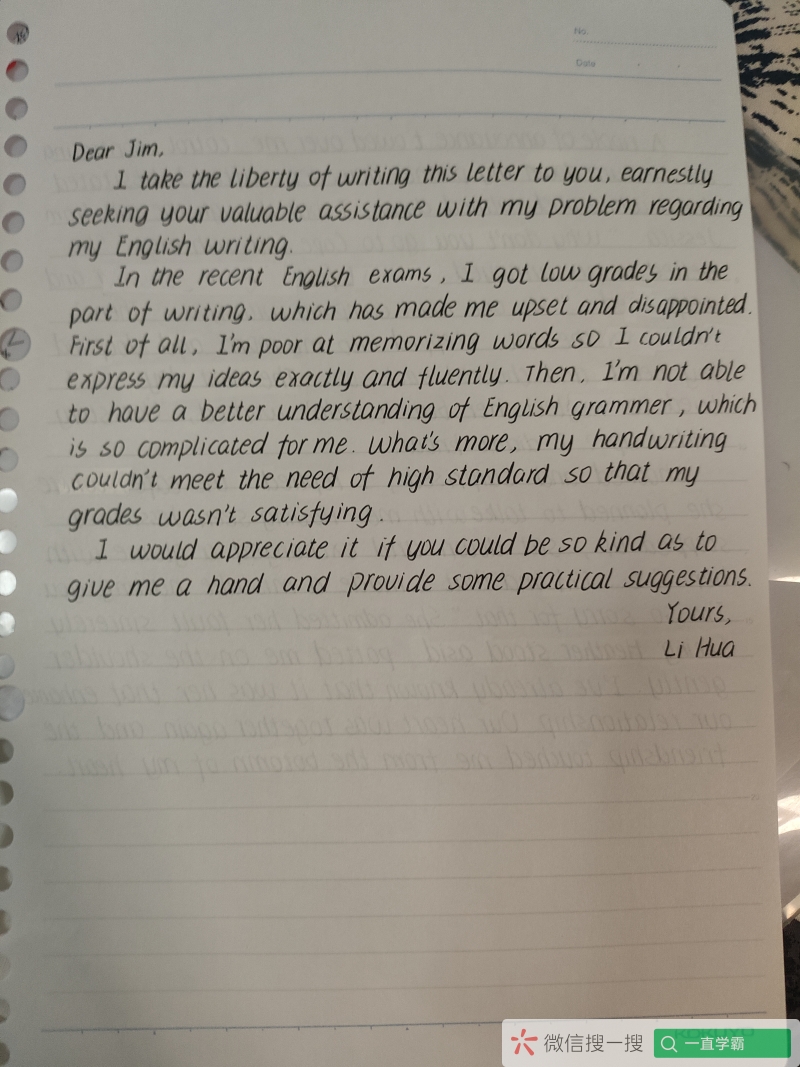 No.
Date
Dear Jim,
I take the liberty of writing this letter to you, earnestly
seeking your valuable assistance with my problem regarding
my English writing.
In the recent English exams, I got low grades in the
part of writing, which has made me upset and disappointed.
First of all, I'm poor at memorizing words so I couldn't
express my ideas exactly and fluently. Then, I'm not able
to have a better understanding of English grammer, which
is so complicated for me. What's more, my handwriting
couldn't meet the need of high standard so that my
grades wasn't satisfying.
I would appreciate it if you could be so kind as to
give me a hand and provide some practical suggestions.
Yours,
Li Hua
微信搜一搜
一直学霸